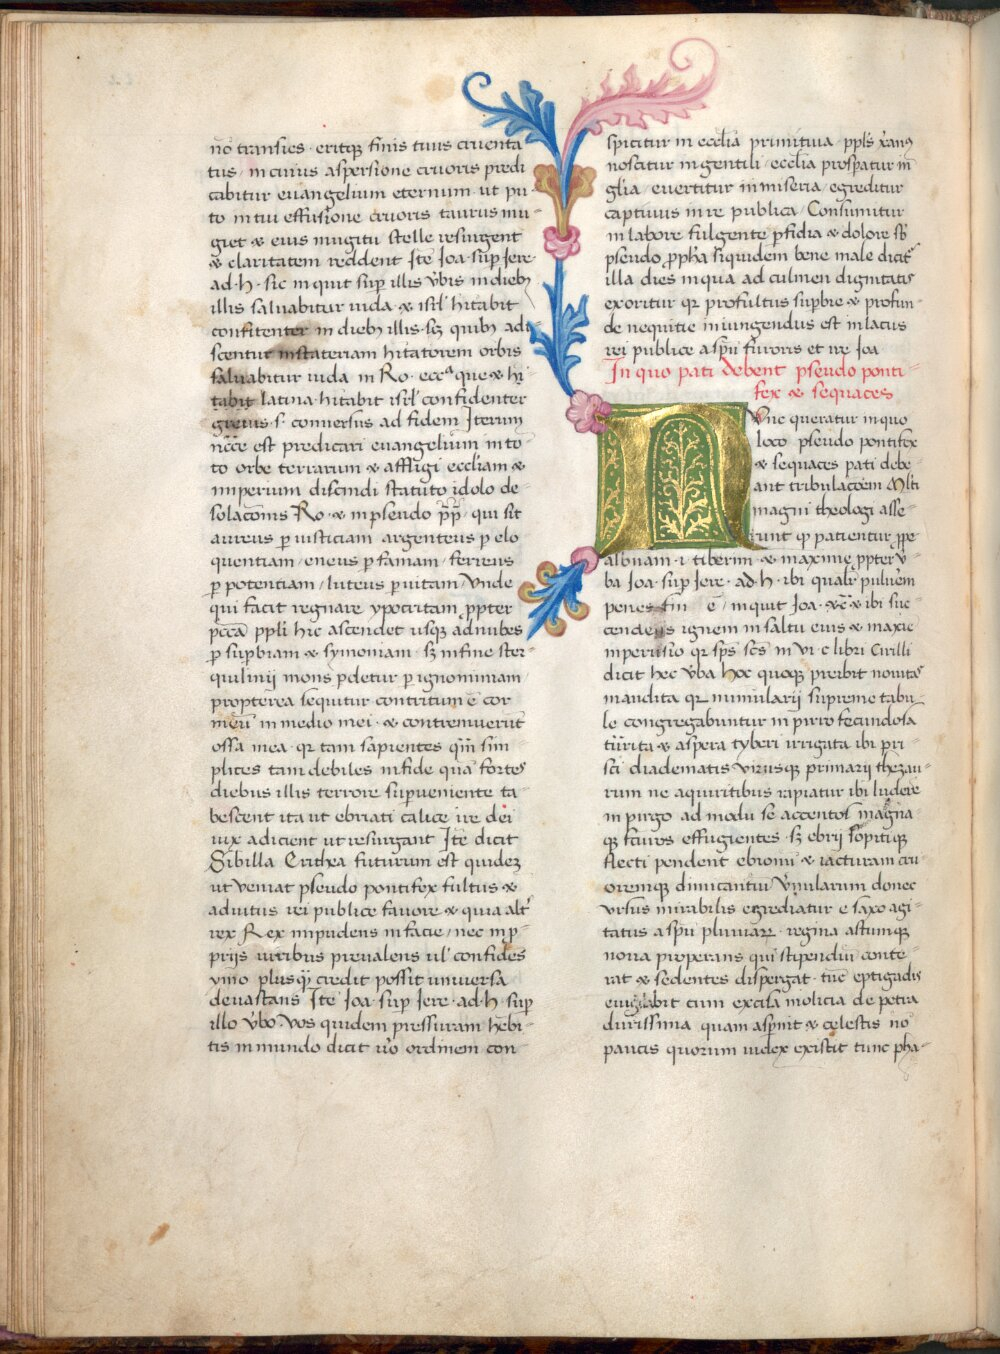 nō transies · eritqꝫ finis tuus cruenta
tus / in cuius aspersione cruoris predi
cabitur euangelium eternum · ut pu
to in tui effusione cruoris taurus mu
giet ⁊ eius mugitu stelle resurgent
⁊ claritatem reddent Itē Ioa · suꝑ Iere
ad · h · sic inquit suꝑ illis ỽbis in diebꝫ
illis saluabitur iuda · ⁊ isrl̓ hitabit
confitenter in diebꝫ illis · sꝫ quibꝫ adi
scentur in stateriam hitatorem orbis
saluabitur iuda in Ro · eccᵃ que ⁊ hi
tabit latina · hitabit isrl̓ confidenter
grecus · s · conuersus ad fidem Iterum
nēce est predicari euangelium in to
to orbe terrarum ⁊ affligi eccliam ⁊
imperium discindi statuto idolo de
solacōnis Ro · ⁊ in pseudo pp̄ · qui sit
aureus ꝑ iusticiam argenteus ꝑ elo
quentiam / eneus ꝑ famam / ferreus
ꝑ potentiam / luteus ꝑ uitam / Vnde
qui facit regnare ypocritam ꝓpter
pccā ppl̓i hic ascendet usqꝫ ad nubes
ꝑ suꝑbiam ⁊ symoniam · sꝫ in fine ster
quilinij mons ꝑdetur ꝑ ignominiam
propterea sequitur contritum ē cor
meū in medio mei · ⁊ contremuerūt
ossa mea · qꝛ tam sapientes qm̄ sim
plices tam debiles in fide quā fortes
diebus illis terrore suꝑueniente ta
bescent ita ut ebriati calice ire dei
uix adicient ut resurgant Itē dicit
Sibilla Erithea futurum est quidez
ut ueniat pseudo pontifex fultus ⁊
adiutus rei publice fauore ⁊ quia alt̓
rex Rex impudens in facie / nec in ꝓ
prijs uiribus preualens ul̓ confides
ymo plusqꝫ credit possit uniuersa
deuastans Itē Ioa · suꝑ Iere · ad · h · suꝑ
illo ỽbo · Vos quidem pressuram hēbi
tis in mundo dicit u̓o ordinem con
spicitur in eccl̄ia primitiua · ppl̓s x̄anꝰ
noscitur in gentili / eccl̄ia prosꝑatur in̄
gl̄ia / euertitur in miseria / egreditur
captiuus in re publica / Consumitur
in labore fulgente ꝑfidia ⁊ dolore sb̓
pseudo ꝓpha siquidem bene male dicit̓
illa dies in qua ad culmen dignitatis
exoritur qꝛ profultus suꝑbie ⁊ profun
de nequitie iniungendus est in lacus
rei publice a spū furoris et ire Ioa
In quo pati debent pseudo ponti
fex ⁊ sequaces
Nunc queratur in quo
loco pseudo pontifex
⁊ sequaces pati debe
ant tribulacōem Ml̓ti
magni theologi asse
runt qꝫ patientur ꝓpe
albulam · i · tiberim · ⁊ maxime ꝓpter ỽ
ba Ioa · suꝑ Iere · ad · h · ibi qualr̓ puluēm
penes ē / inquit Ioa · ⁊ ibi suc
cendens ignem in saltu eius ⁊ maxīe
imperiūo qꝛ sps̄ scs̄ in vi · c libri Cirilli
dicit hec ỽba hoc quoqꝫ preibit nouitas
inandita qꝛ numularij supreme tabu
le congregabuntur in pirro fecundosa
turrita ⁊ aspera tyberi irrigata ibi pri
sci diadematis virusqꝫ primarij thezau
rum ne aquiritibus rapiatur ibi ludere
in pirgo ad modū se accentos magna
qꝫ sciuros effugientes · sꝫ ebrij sopitiqꝫ
flecti pendent ebionū ⁊ iacturam cru
oremqꝫ dimicantiū v̓nularum donec
vrsus mirabilis egrediatur e saxo agi
tatus a spū pluuiaꝝ · regina astumqꝫ
noua properans qui stipendiū conte
rat ⁊ sedentes dispergat · tūc eptigadis
euigilabit cum excisa molicia de petra
durissima quam asꝑnit ⁊ celestis no
paucis quorum iudex existit tunc pha